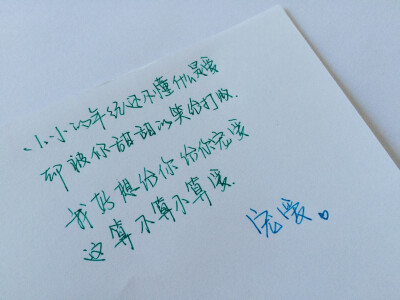 小小的年纪还不懂什么是爱
却被你甜甜的笑给打败.
我好想给你给你宠爱
这算不算不算爱.
宠爱。